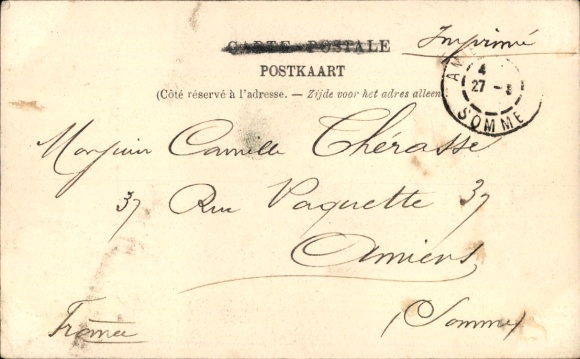 CARTE POSTALE Imprimé
POSTKAART
(Côté réservé à l'adresse. — Zijde voor het adres alleen
4
27 -
SOMME
Monsieur Camille Thérasse
37 Rue Vaquette 37
Amiens
France (Somme)